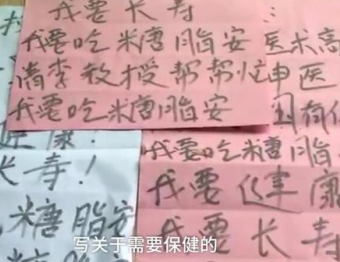 我要长寿
我要吃糖脂安
请李教授帮帮忙
我要吃糖脂安
医术高
神医
长寿!
糖脂安
我要吃糖脂
我要健康
我要长寿
写关于需要保健的